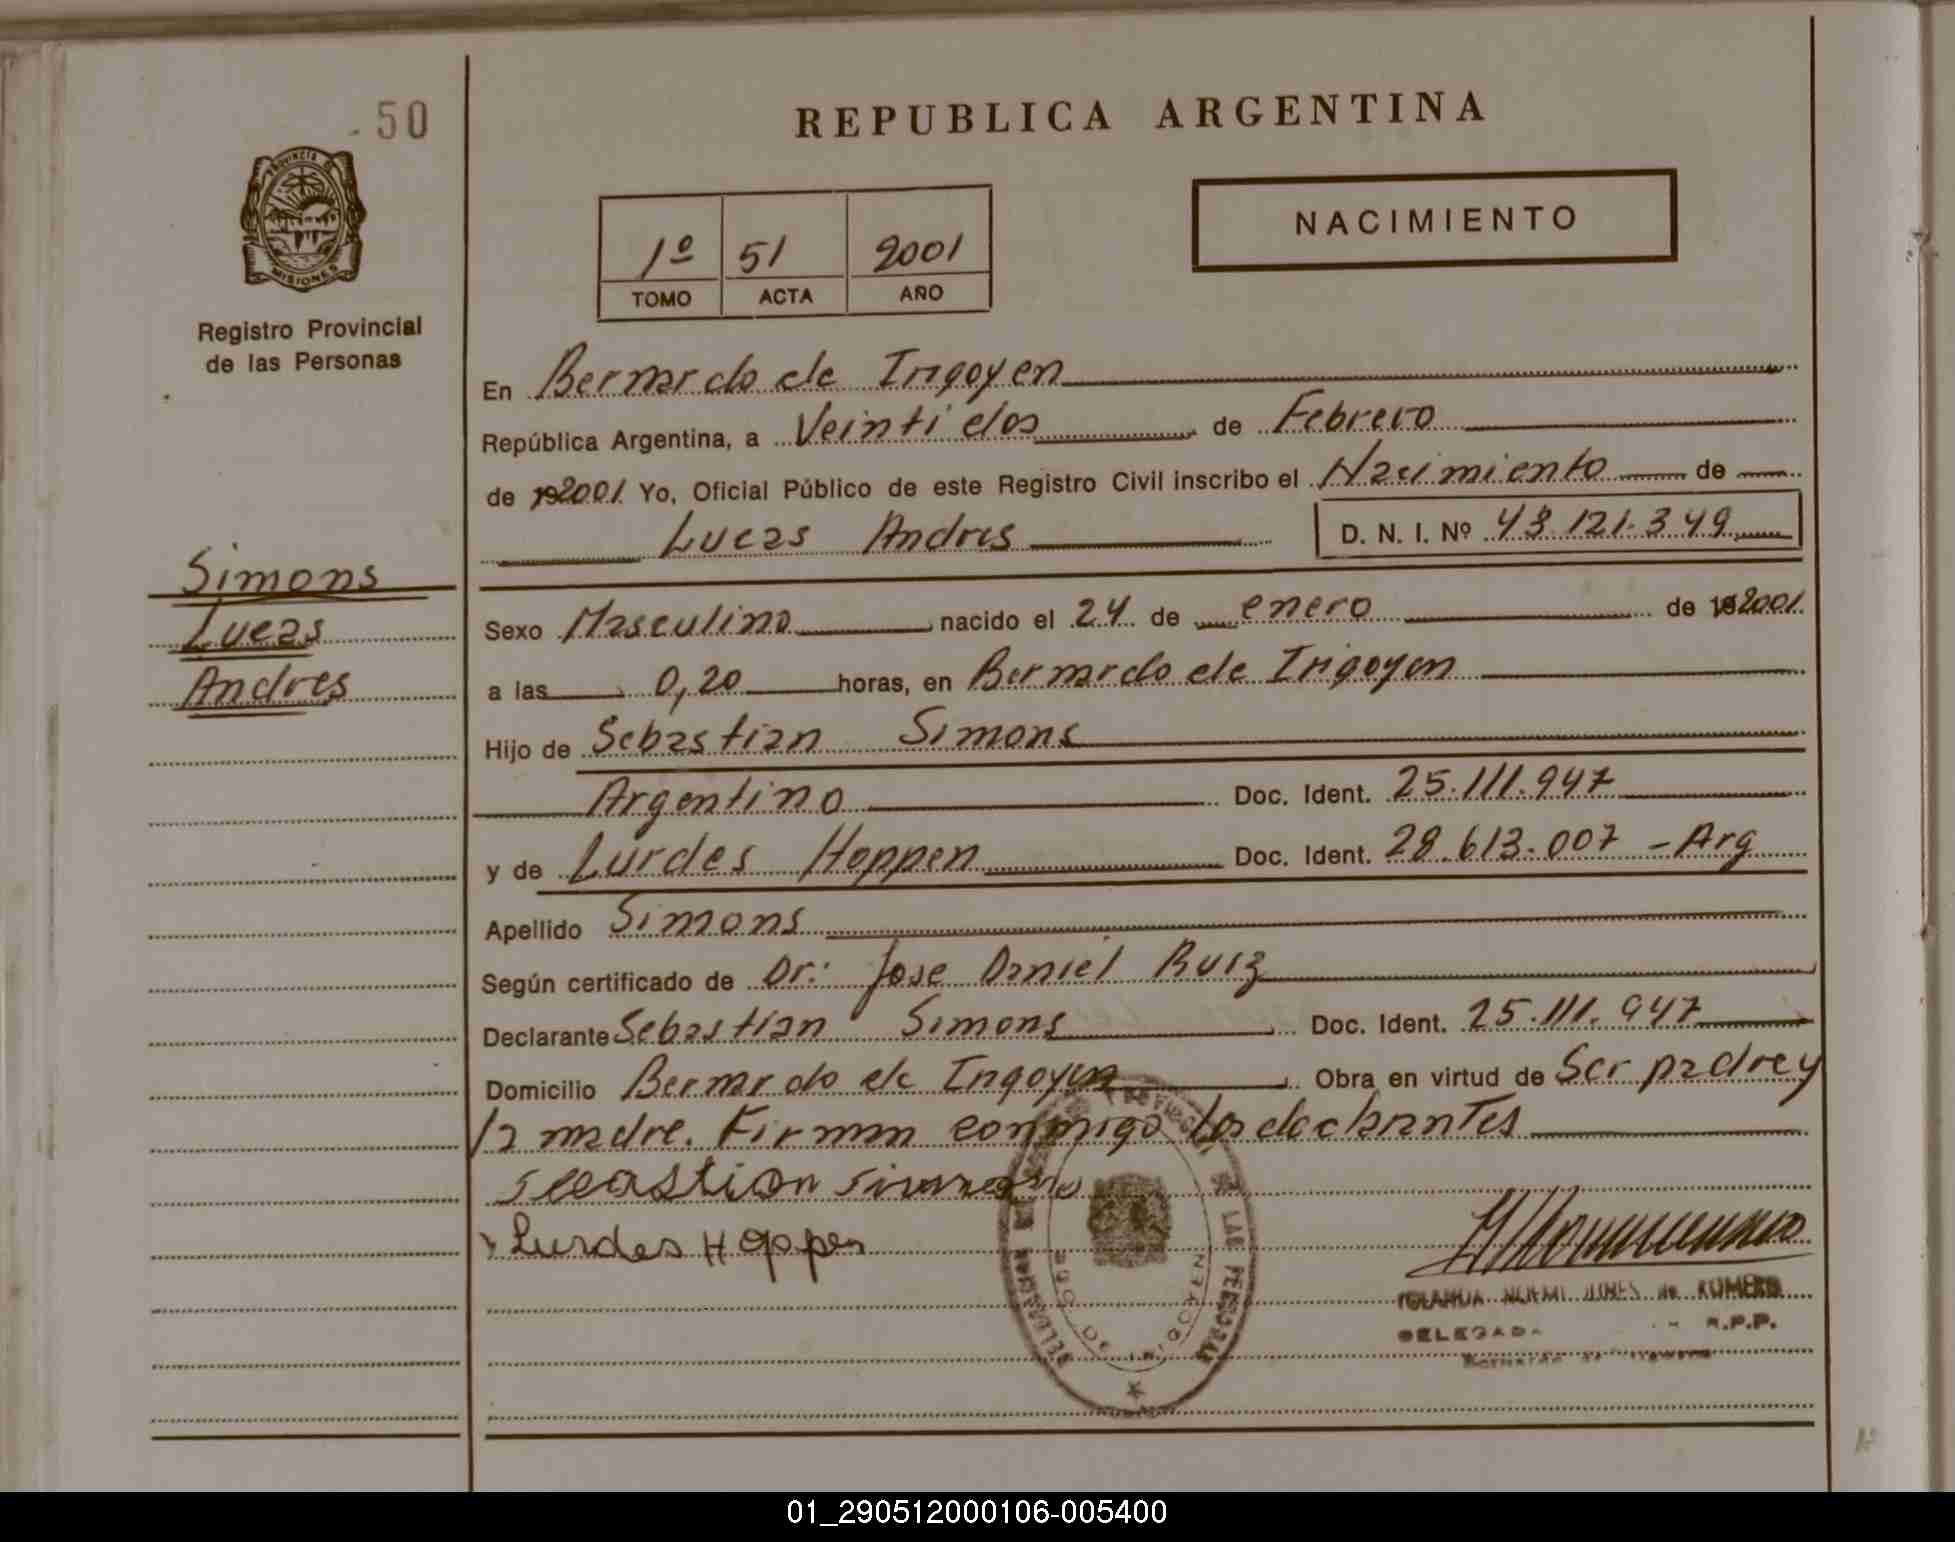 50
PROVINCIA DE
MISIONES
Registro Provincial
de las Personas
Simons
Lucas
Andres
REPUBLICA ARGENTINA
NACIMIENTO
1º 51 2001
TOMO ACTA AÑO
En Bernardo de Irigoyen
República Argentina, a Veinti dos de Febrero
de 192001 Yo, Oficial Público de este Registro Civil inscribo el Nacimiento de
Lucas Andres D. N. I. Nº 43.121.349
Sexo Masculino nacido el 24 de enero de 192001
a las 0,20 horas, en Bernardo de Irigoyen
Hijo de Sebastian Simons
Argentino Doc. Ident. 25.111.947
y de Lurdes Hoppen Doc. Ident. 28.613.007 - Arg
Apellido Simons
Según certificado de Dr: Jose Daniel Ruiz
Declarante Sebastian Simons Doc. Ident. 25.111.947
Domicilio Bernardo de Irigoyen Obra en virtud de Ser padre y
la madre. Firman conmigo los declarantes
Sebastian Simons
Lurdes Hoppen
DE LAS PERSONAS
BDO. DE IRIGOYEN
NOEMI de ROMERO
DELEGADA R.P.P.
Bernardo de Irigoyen
01_290512000106-005400